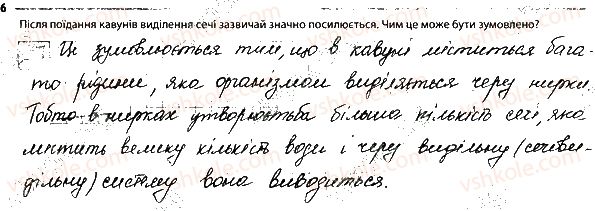 6
Після поїдання кавунів виділення сечі зазвичай значно посилюється. Чим це може бути зумовлено?
Це зумовлюється тим, що в кавуні міститься бага-
то рідини, яка організмом виділяється через нирки.
Тобто в нирках утворюється більша кількість сечі, яка
містить велику кількість води і через видільну (сечеви-
дільну) систему вона виводиться.